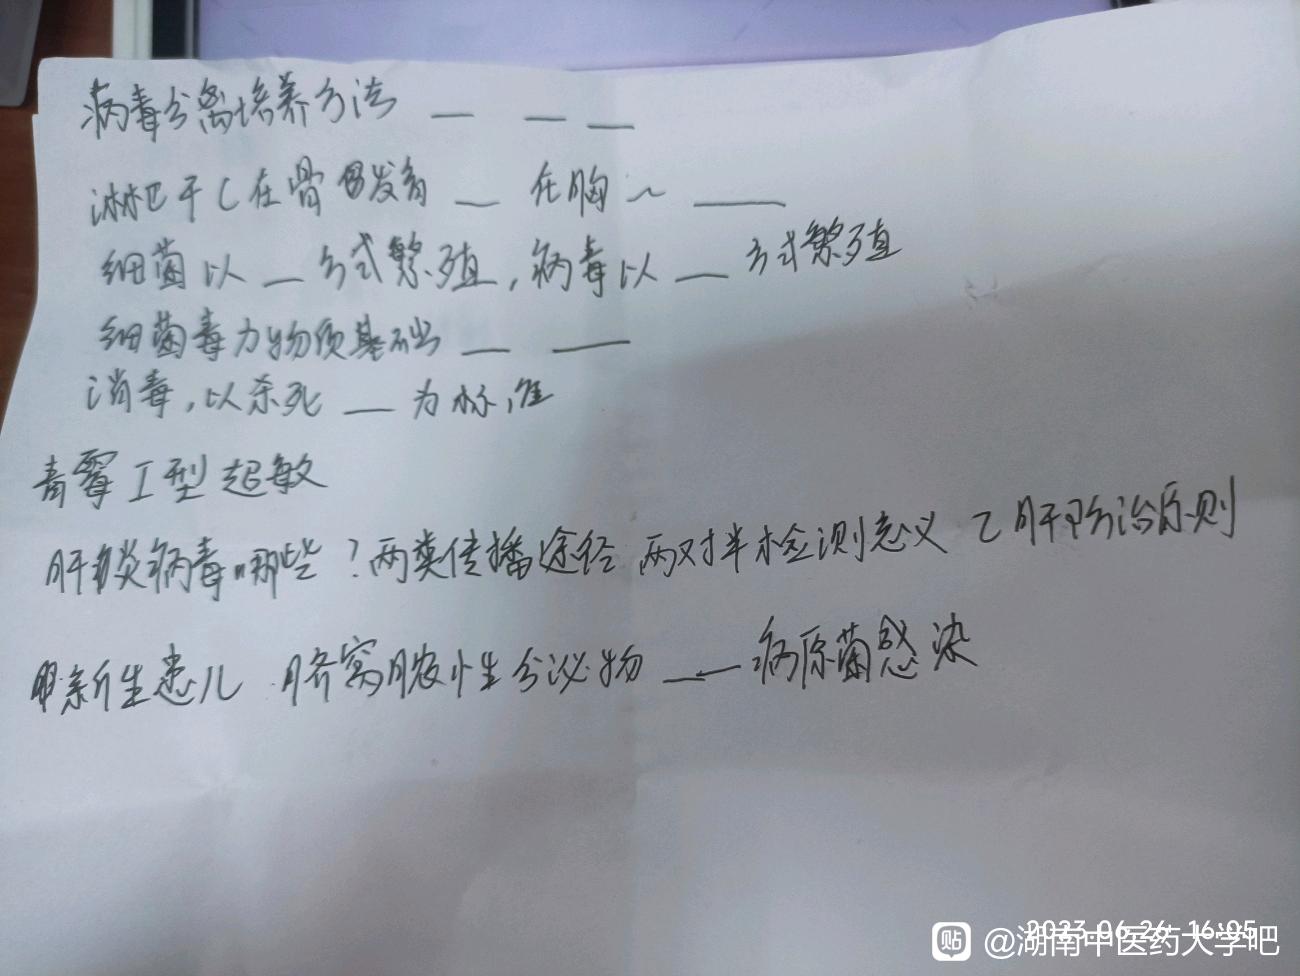 病毒分离培养方法 __ __ __
淋巴干C在骨髓发育 __ 在胸~ ____
细菌以 __ 方式繁殖，病毒以 __ 方式繁殖
细菌毒力物质基础 __ ____
消毒，以杀死 __ 为标准
青霉I型超敏
肝炎病毒哪些？两类传播途径 两对半检测意义 乙肝防治原则
新生患儿 脐窝脓性分泌物 ____ 病原菌感染
2023.06.26 16:05
贴 @湖南中医药大学吧